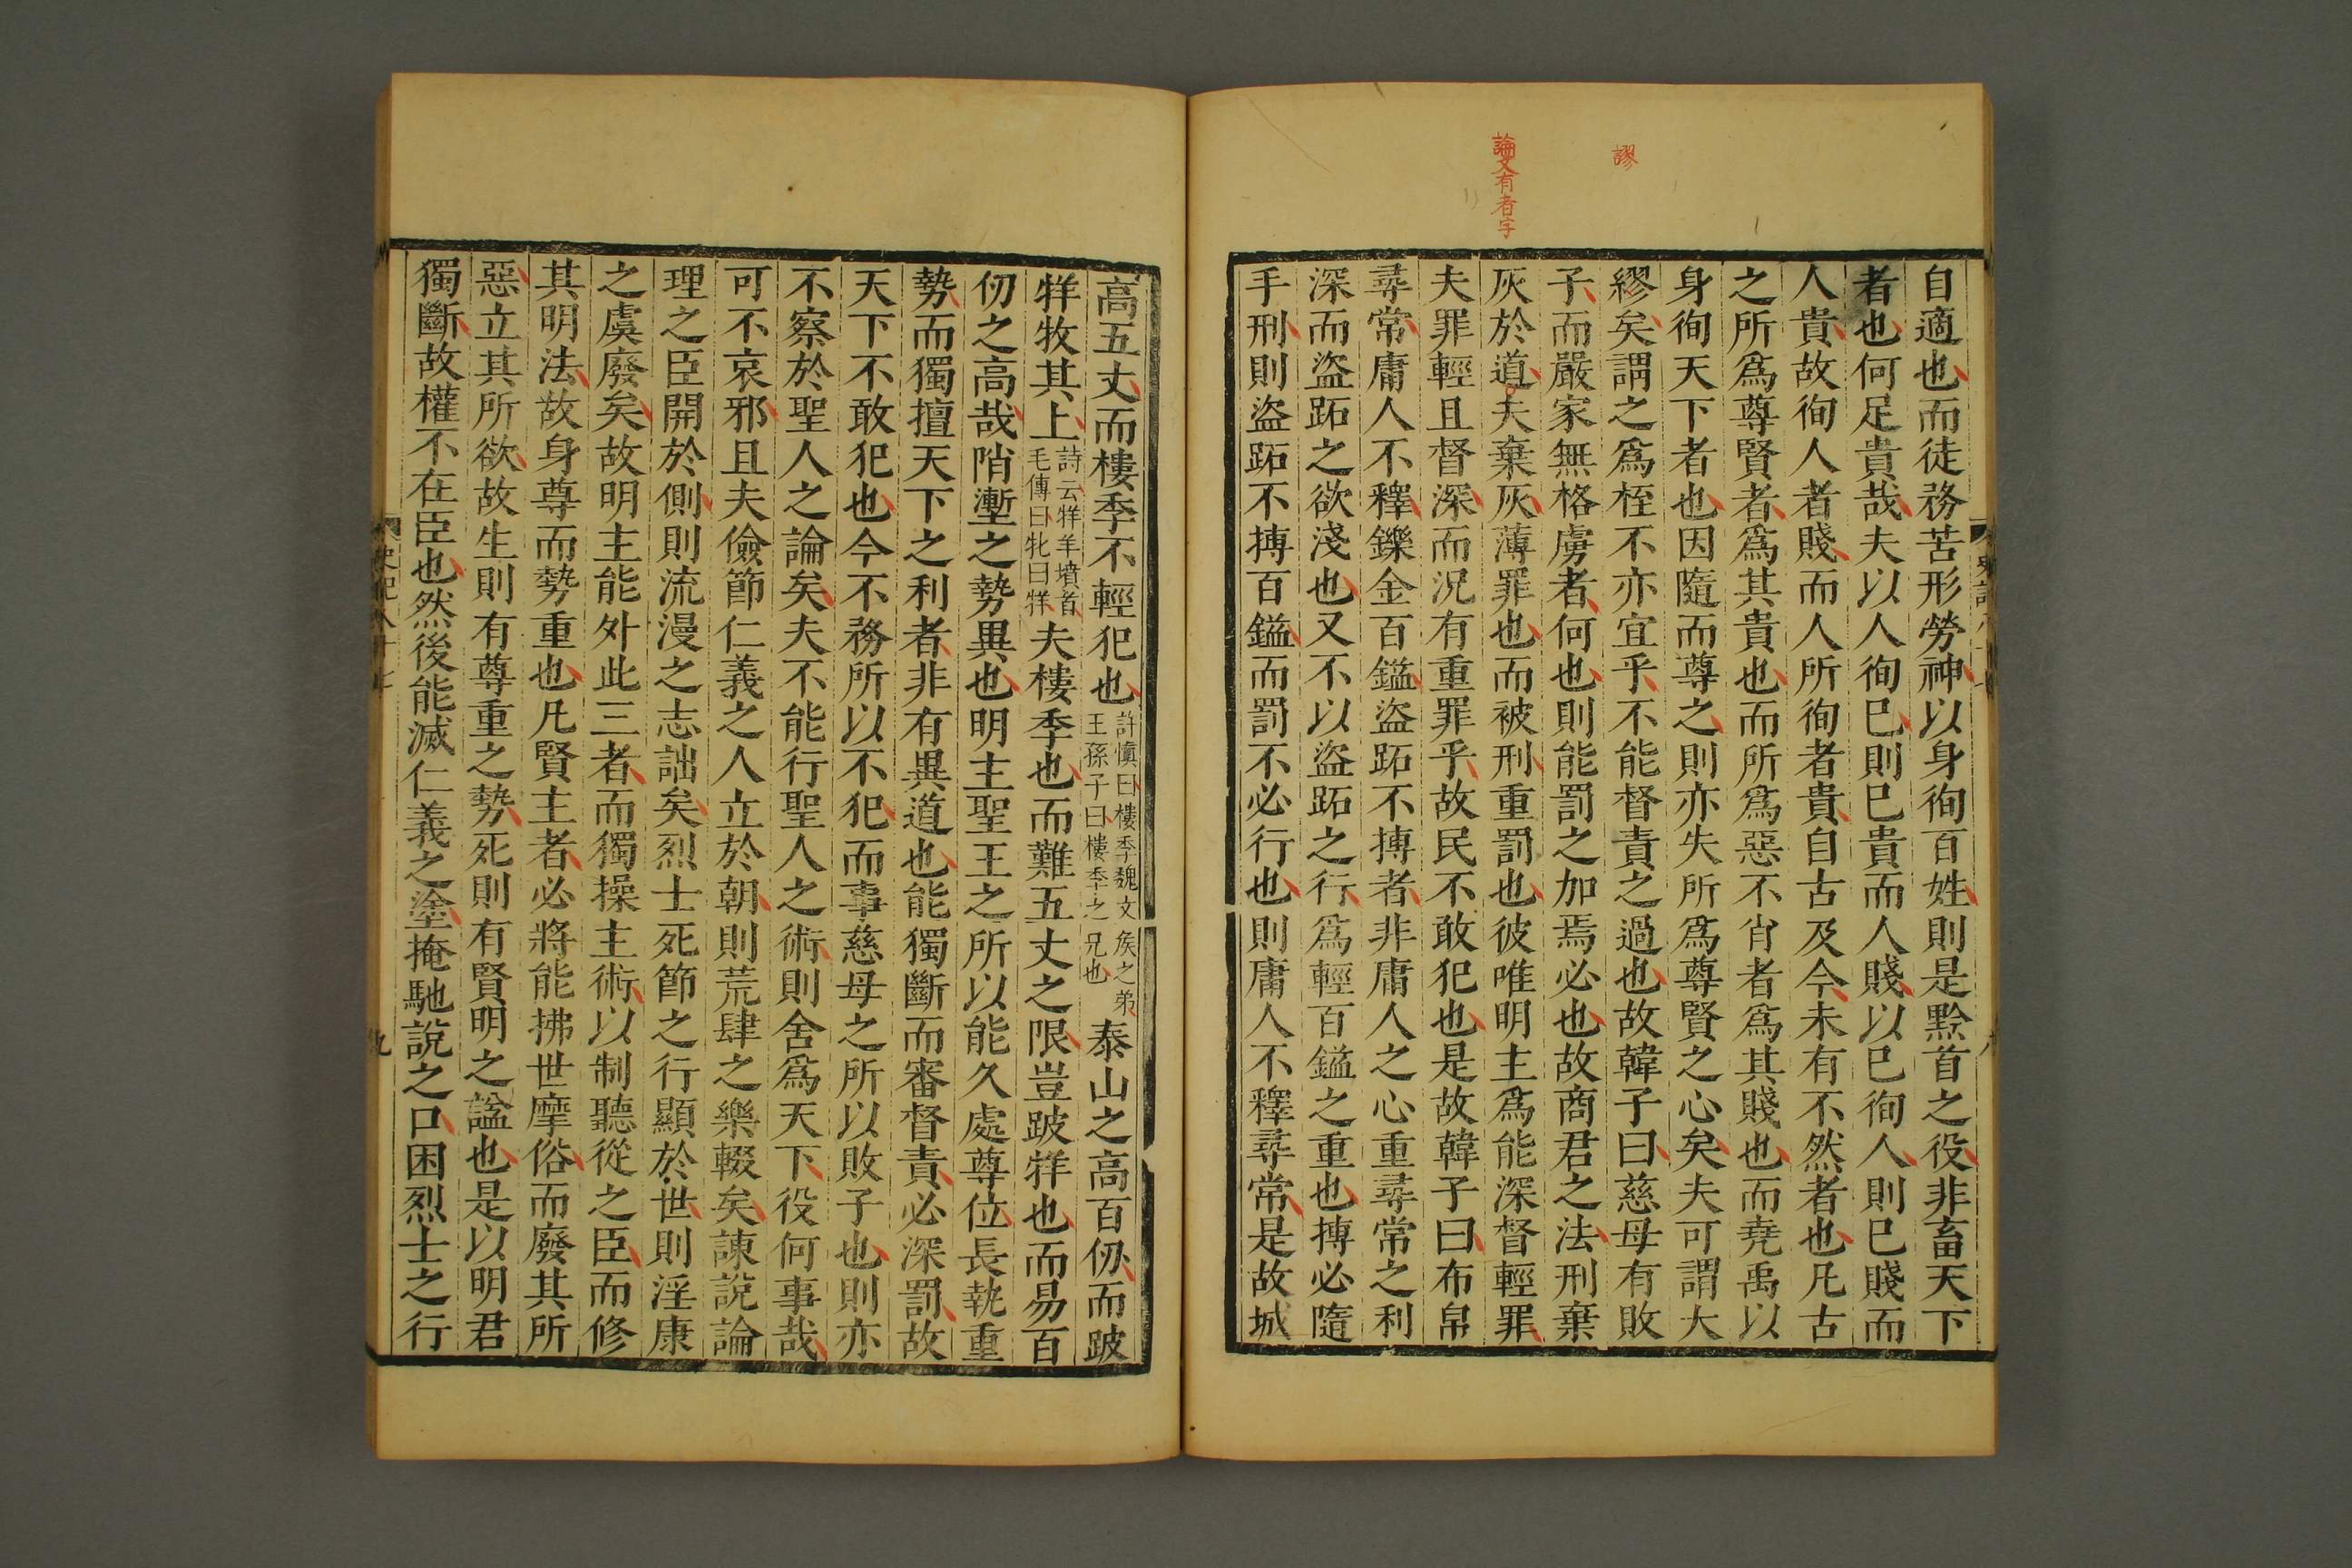 謬
論文有者字
自適也而徒務苦形勞神以身徇百姓則是黔首之役非畜天下
者也何足貴哉夫以人徇己則己貴而人賤以己徇人則己賤而
人貴故徇人者賤而人所徇者貴自古及今未有不然者也凡古
之所爲尊賢者爲其貴也而所爲惡不肖者爲其賤也而堯禹以
身徇天下者也因隨而尊之則亦失所爲尊賢之心矣夫可謂大
繆矣謂之爲桎不亦宜乎不能督責之過也故韓子曰慈母有敗
子而嚴家無格虜者何也則能罰之加焉必也故商君之法刑棄
灰於道夫棄灰薄罪也而被刑重罰也彼唯明主爲能深督輕罪
夫罪輕且督深而況有重罪乎故民不敢犯也是故韓子曰布帛
尋常庸人不釋鑠金百鎰盜跖不搏者非庸人之心重尋常之利
深而盜跖之欲淺也又不以盜跖之行爲輕百鎰之重也搏必隨
手刑則盜跖不搏百鎰而罰不必行也則庸人不釋尋常是故城
高五丈而樓季不輕犯也許愼曰樓季魏文矦之弟王孫子曰樓季之兄也泰山之高百仞而跛
牂牧其上詩云牂羊墳首毛傳曰牝曰牂夫樓季也而難五丈之限豈跛牂也而易百
仞之高哉陗塹之勢異也明主聖王之所以能久處尊位長執重
勢而獨擅天下之利者非有異道也能獨斷而審督責必深罰故
天下不敢犯也今不務所以不犯而事慈母之所以敗子也則亦
不察於聖人之論矣夫不能行聖人之術則舍爲天下役何事哉
可不哀邪且夫儉節仁義之人立於朝則荒肆之樂輟矣諫說論
理之臣開於側則流漫之志詘矣烈士死節之行顯於世則淫康
之虞廢矣故明主能外此三者而獨操主術以制聽從之臣而修
其明法故身尊而勢重也凡賢主者必將能拂世摩俗而廢其所
惡立其所欲故生則有尊重之勢死則有賢明之諡也是以明君
獨斷故權不在臣也然後能滅仁義之塗掩馳說之口困烈士之行
史記八十七
九